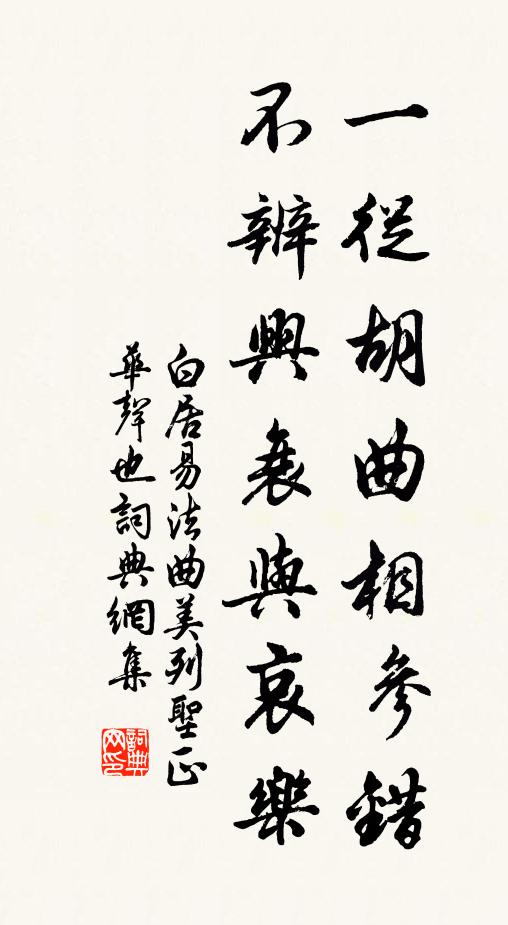 一從胡曲相參錯
不辨興衰與哀樂
白居易法曲美列聖正
華聲也詞典網集
詞典网印